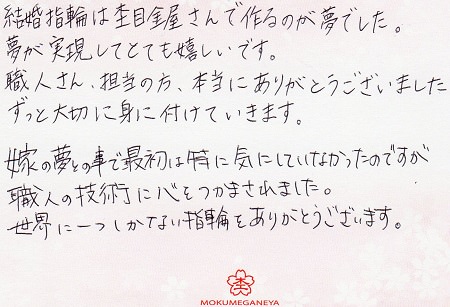 結婚指輪は杢目金屋さんで作るのが夢でした。
夢が実現してとても嬉しいです。
職人さん、担当の方、本当にありがとうございました
ずっと大切に身に付けていきます。
嫁の夢との事で最初は特に気にしていなかったのですが
職人の技術に心をつかまされました。
世界に一つしかない指輪をありがとうございます。
杢
MOKUMEGANEYA